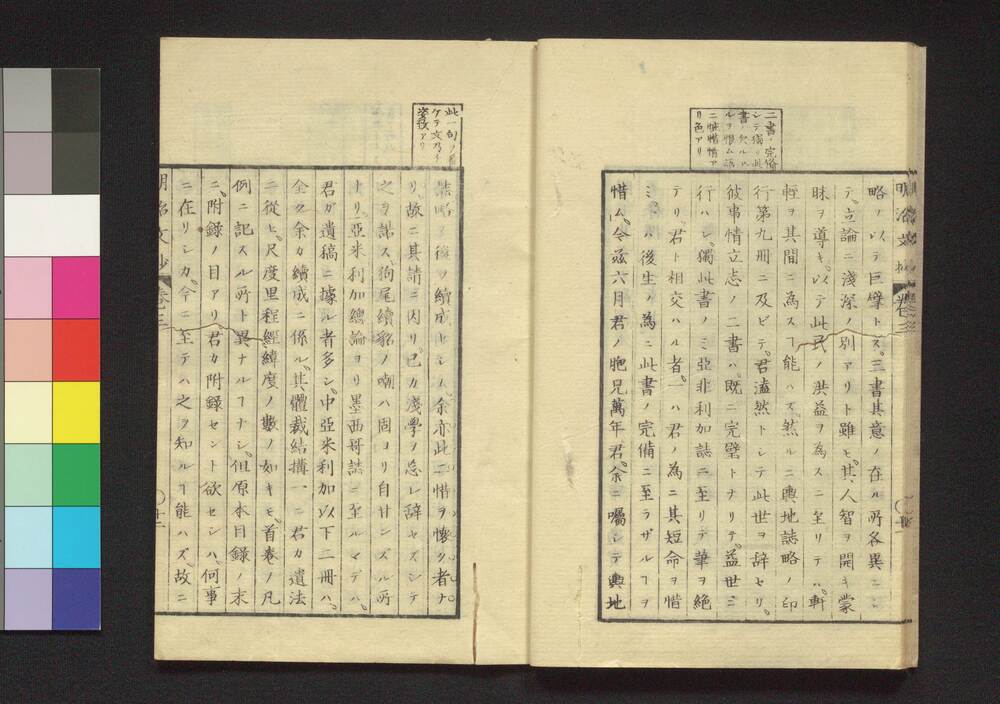 二書ノ完備
シテ獨リ此
書ノ欠ルヿ
ルヲ恨ム語
ニ憾惜情ア
リ色アリ
明治文抄 卷三
略ノ以テ巨擘トス。三書其意ノ在ル所各異ニシ
テ、立論ニ淺深ノ別アリト雖モ、其人智ヲ開キ蒙
昧ヲ導キ、以テ此民ノ洪益ヲ為スニ至リテハ、軒
輊ヲ其間ニ為スヿ能ハズ。然ルニ輿地誌略ノ印
行第九冊ニ及ビテ、君溘然トシテ此世ヲ辞セリ。
彼事情立志ノ二書ハ、既ニ完璧トナリテ、益世ニ
行ハレ、獨此書ノミ亞非利加誌ニ至リテ筆ヲ絶
テリ。君ト相交ハル者、一ハ君ノ為ニ其短命ヲ惜
ミ、一ハ後生ノ為ニ此書ノ完備ニ至ラザルヿヲ
惜ム。今茲六月君ノ胞兄萬年君、余ニ囑シテ輿地
此一句ノ
ケテ文乃チ
姿致アリ
誌略ノ後ヲ續成セシム。余亦此二惜ヲ懷ク者ナ
リ。故ニ其請ニ因リ、己カ淺學ヲ忘レ辞セズシテ
之ヲ諾ス。狗尾續貂ノ嘲ハ固ヨリ自甘ンズル所
ナリ。亞米利加總論ヨリ墨西哥誌ニ至ルマデハ、
君ガ遺稿ニ據ル者多シ。中亞米利加以下二冊ハ、
全ク余カ續成ニ係ル。其體裁結搆一ニ君カ遺法
ニ從ヒ、尺度里程經緯度ノ數ノ如キモ、首巻ノ凡
例ニ記スル所ト異ナルヿナシ。但原本目録ノ末
ニ、附録ノ目アリ。君カ附録セント欲セシハ、何事
ニ在リシカ、今ニ至テハ之ヲ知ルヿ能ハズ。故ニ
明治文抄 卷三